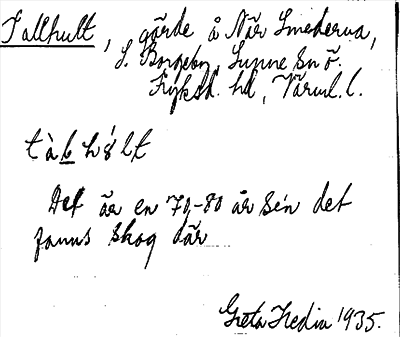 Tallhult, gärde å När Smederna,
S. Borgeby, Sunne sn ö.
Fryksd. hd, Värml. l.
Det är en 70-80 år sén det
fanns skog där
Greta Hedin 1935.